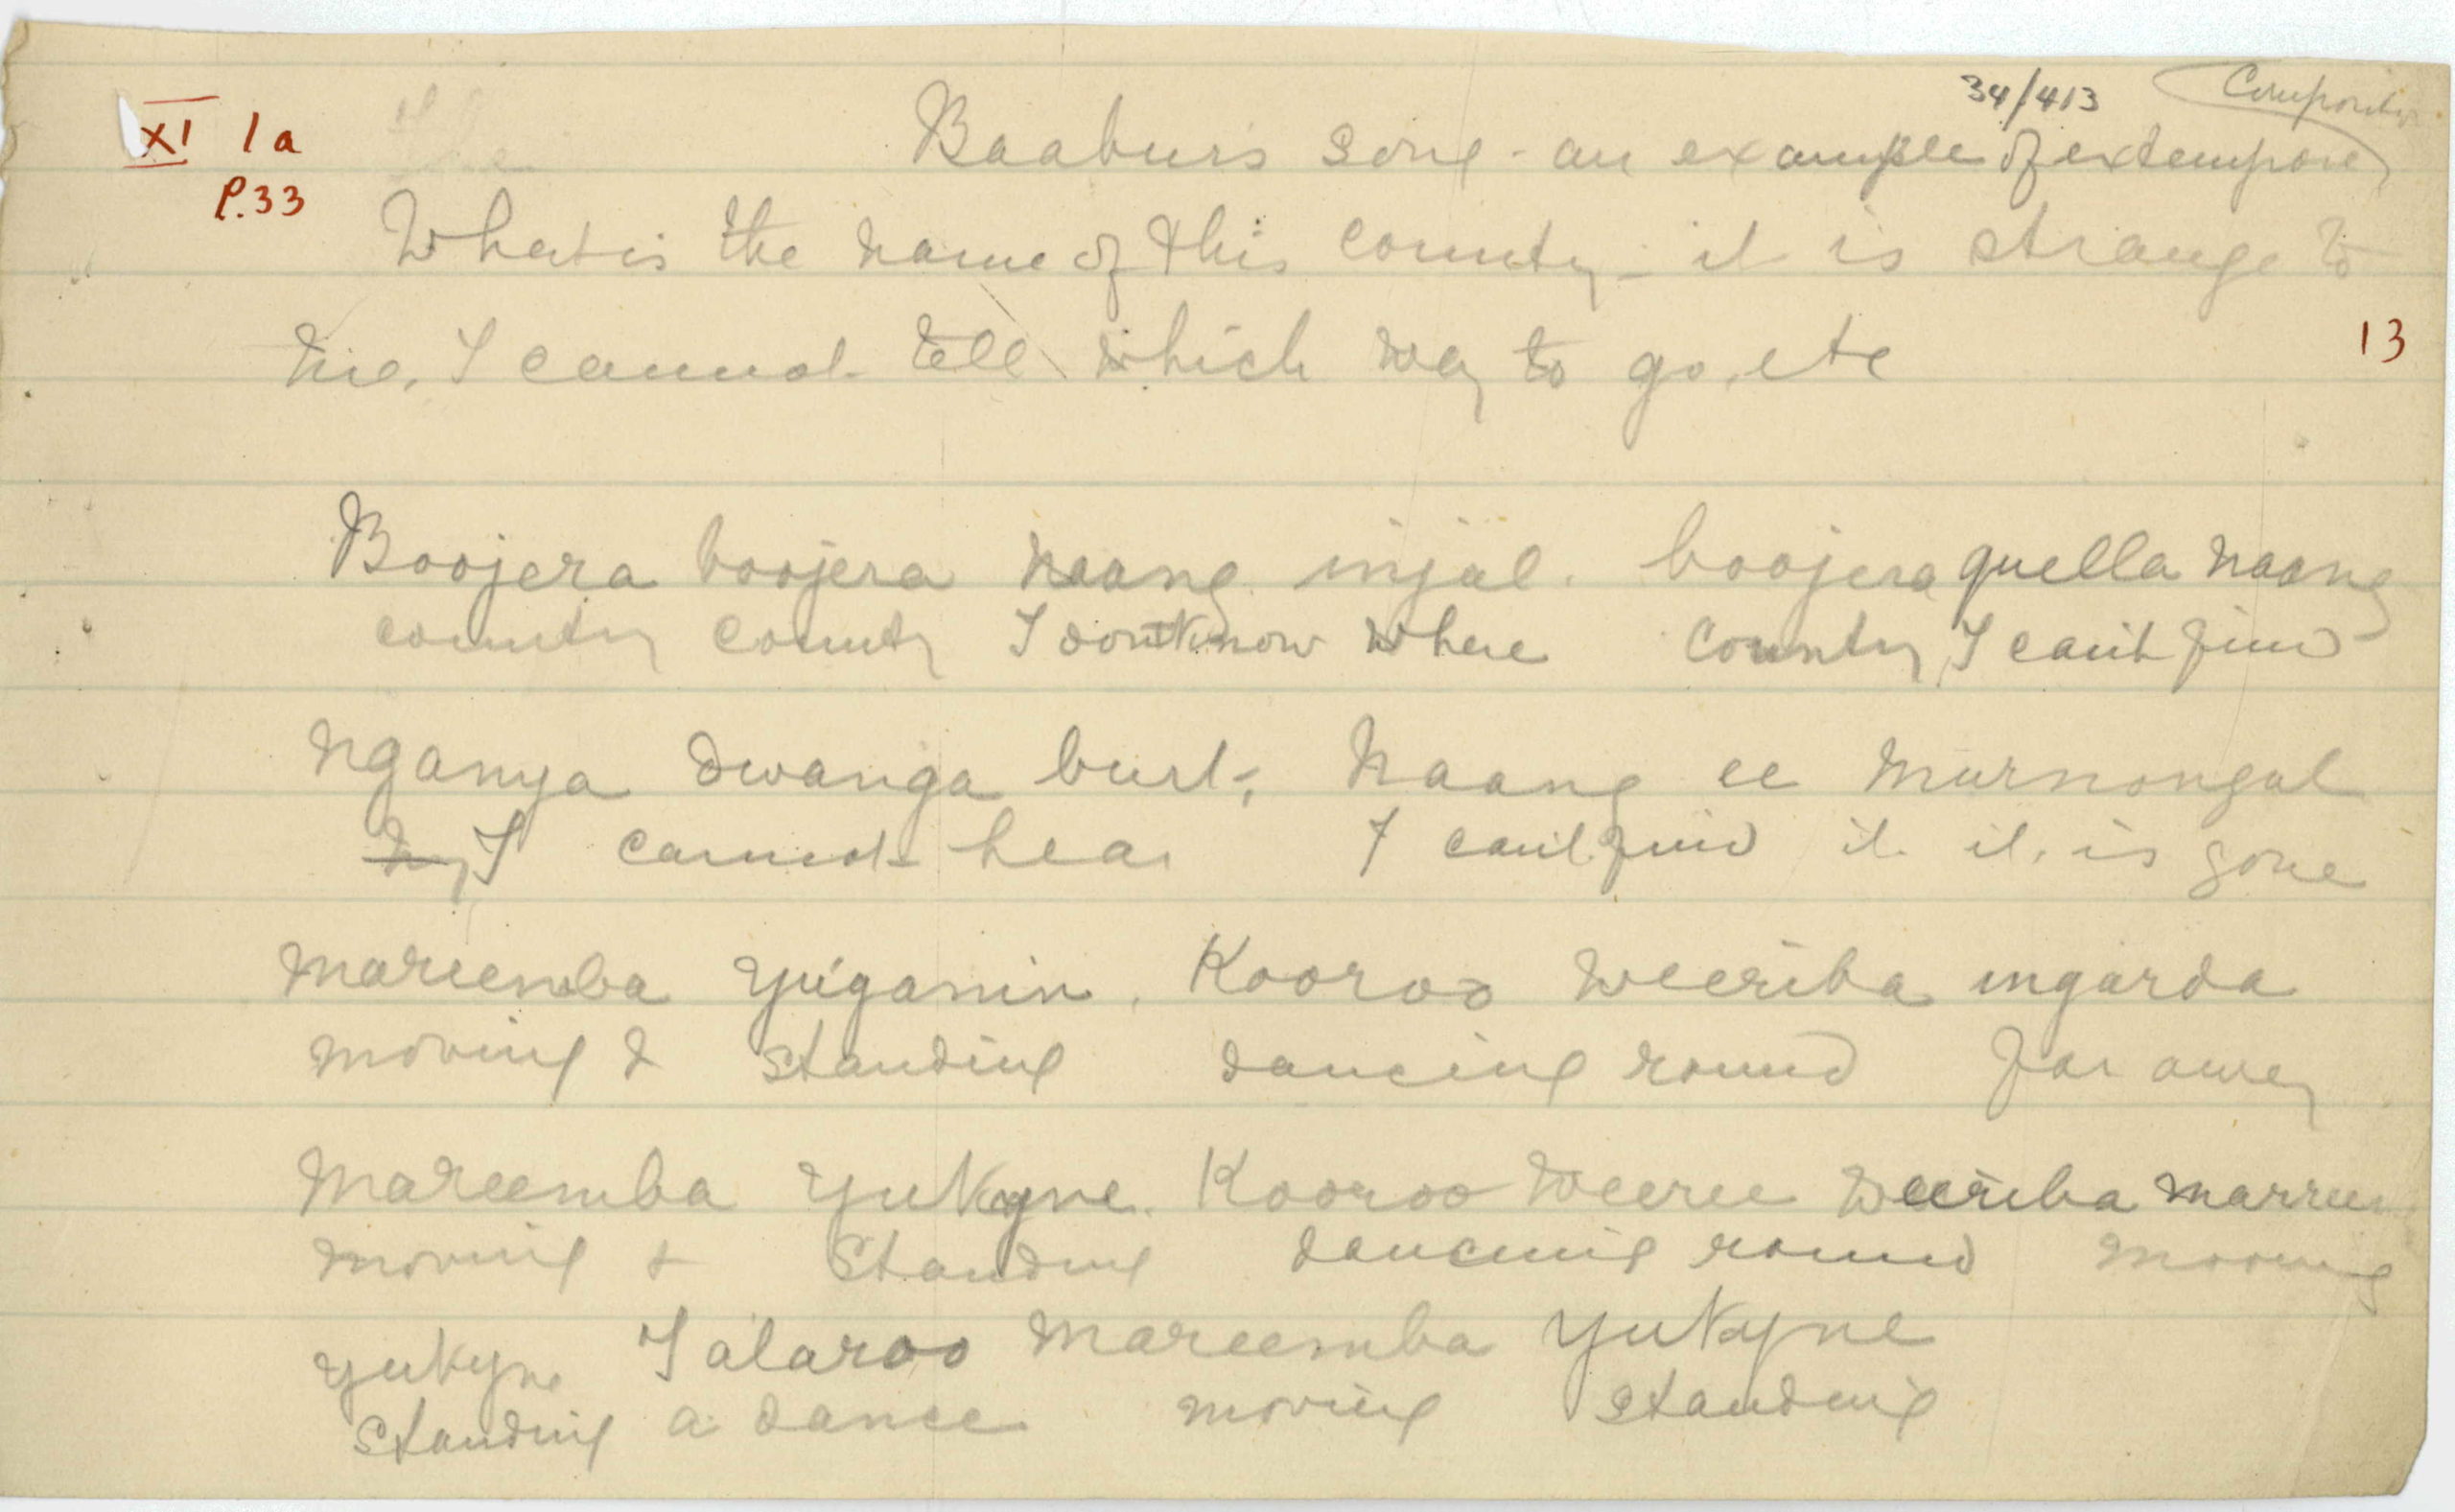 34/413 Composition
XI 1a Baabur's song - an example of extempore
P.33
What is the name of this country - it is strange to
me, I cannot tell which way to go, etc
13
Boojera boojera naang injal. boojera quella naang
country country I don't know where country, I can't find
nganya dwanga burt, naang ee murnongal
my I cannot hear I can't find it it is gone
mareemba yuganin, Kooroo weeriba ngarda
moving & standing dancing round far away
mareemba yukyne. Kooroo weeree weeriba marree
moving & standing dancing round moving
yukyne Jalaroo mareemba yukyne
standing a dance moving standing